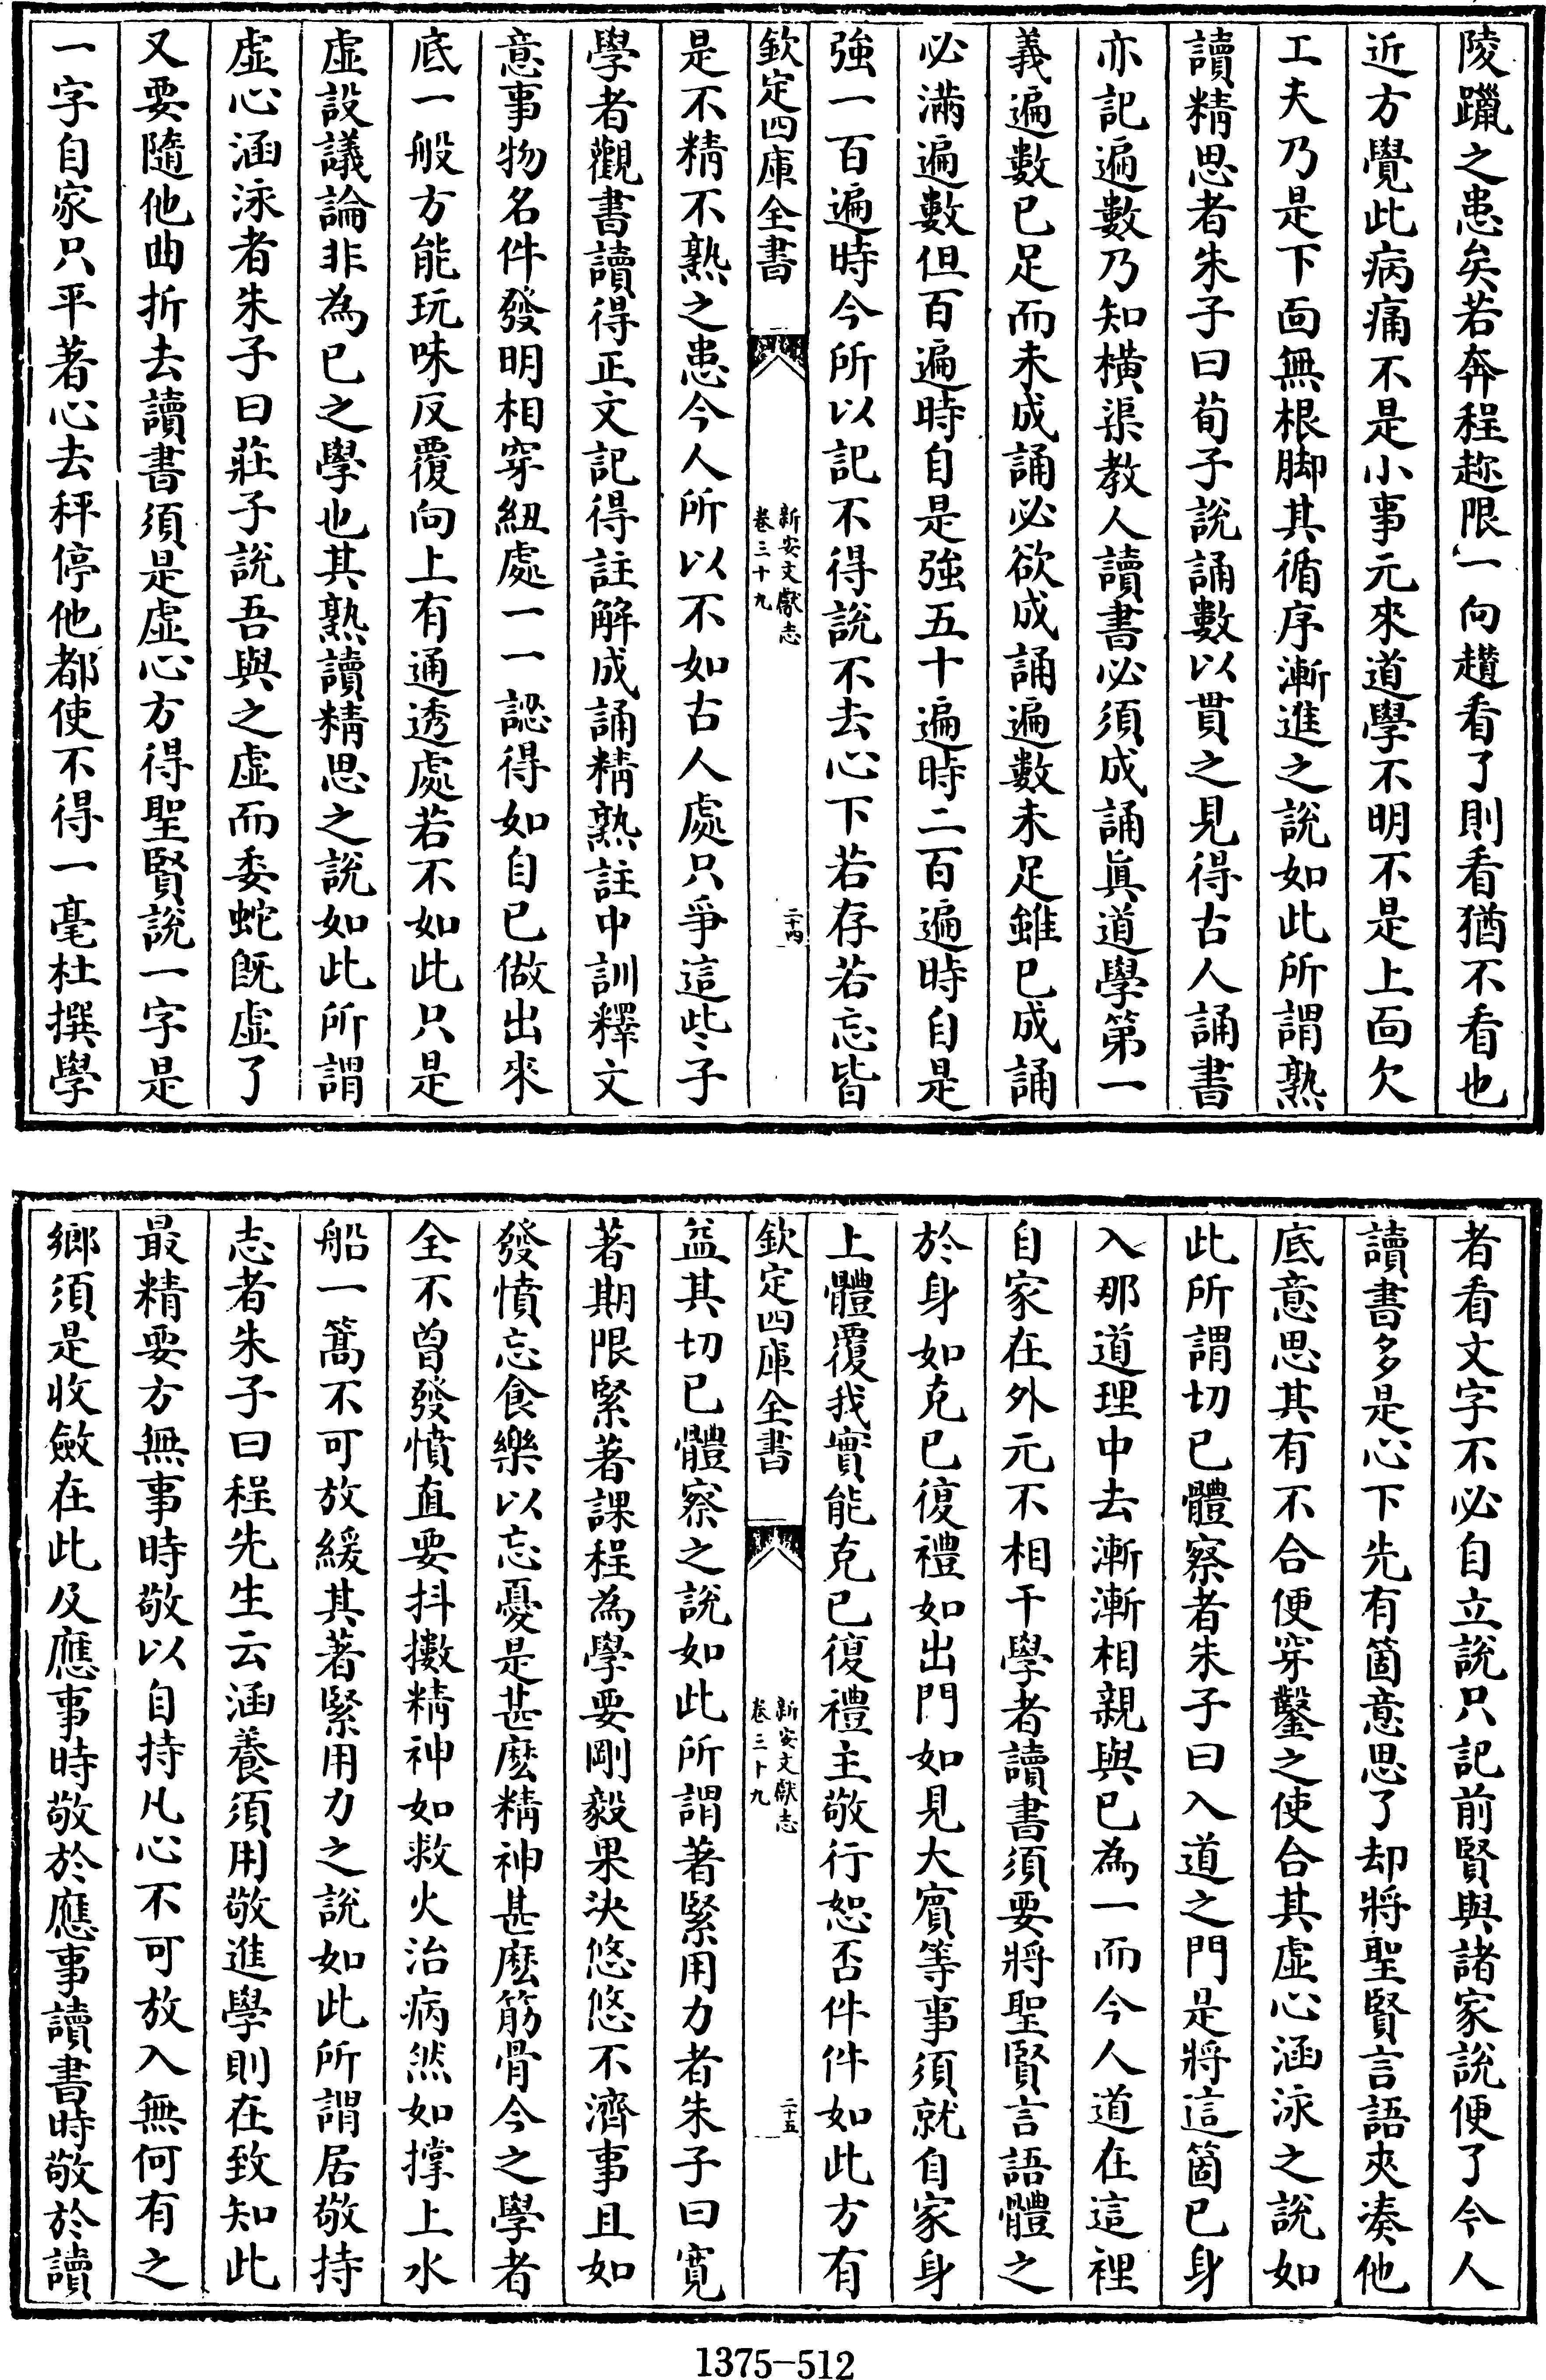 陵躐之患矣若奔程趂限一向趲看了則看猶不看也
近方覺此病痛不是小事元來道學不明不是上面欠
工夫乃是下面無根脚其循序漸進之說如此所謂熟
讀精思者朱子曰荀子說誦數以貫之見得古人誦書
亦記遍數乃知橫渠教人讀書必須成誦眞道學第一
義遍數已足而未成誦必欲成誦遍數未足雖已成誦
必滿遍數但百遍時自是強五十遍時二百遍時自是
強一百遍時今所以記不得說不去心下若存若忘皆
欽定四庫全書
新安文獻志
卷三十九
二十四
是不精不熟之患今人所以不如古人處只爭這些子
學者觀書讀得正文記得註解成誦精熟註中訓釋文
意事物名件發明相穿紐處一一認得如自己做出來
底一般方能玩味反覆向上有通透處若不如此只是
虛設議論非為已之學也其熟讀精思之說如此所謂
虛心涵泳者朱子曰莊子說吾與之虛而委蛇旣虛了
又要隨他曲折去讀書須是虛心方得聖賢說一字是
一字自家只平著心去秤停他都使不得一毫杜撰學
者看文字不必自立說只記前賢與諸家說便了今人
讀書多是心下先有箇意思了却將聖賢言語夾湊他
底意思其有不合便穿鑿之使合其虛心涵泳之說如
此所謂切已體察者朱子曰入道之門是將這箇已身
入那道理中去漸漸相親與已為一而今人道在這裡
自家在外元不相干學者讀書須要將聖賢言語體之
於身如克已復禮如出門如見大賓等事須就自家身
上體覆我實能克已復禮主敬行恕否件件如此方有
欽定四庫全書
新安文獻志
卷三十九
二十五
益其切已體察之說如此所謂著緊用力者朱子曰寬
著期限緊著課程為學要剛毅果決悠悠不濟事且如
發憤忘食樂以忘憂是甚麽精神甚麽筋骨今之學者
全不曾發憤直要抖擻精神如救火治病然如撐上水
船一篙不可放緩其著緊用力之說如此所謂居敬持
志者朱子曰程先生云涵養須用敬進學則在致知此
最精要方無事時敬以自持凡心不可放入無何有之
鄉須是收斂在此及應事時敬於應事讀書時敬於讀
1375-512